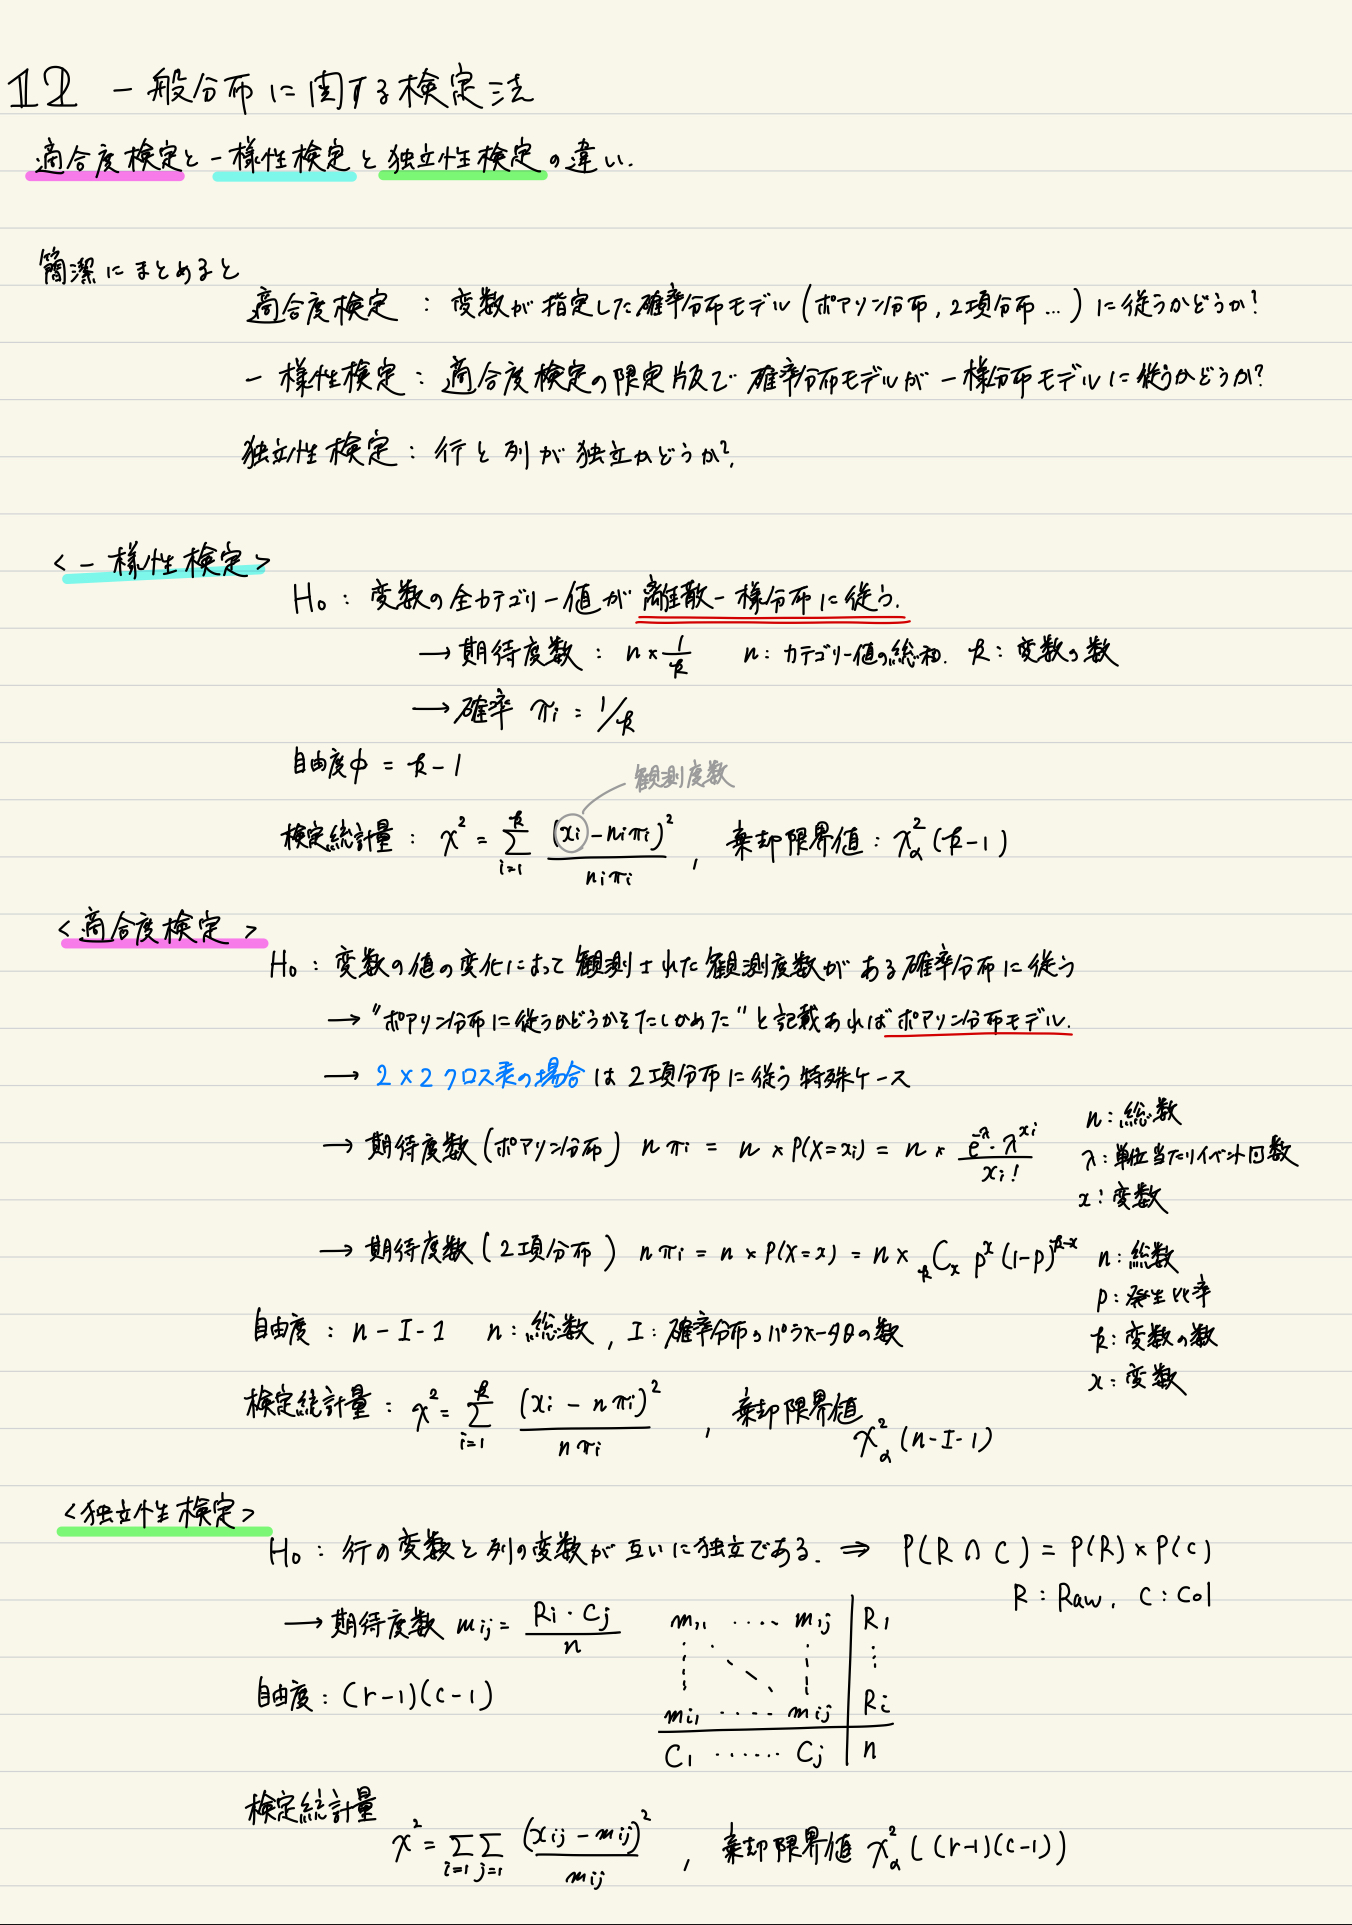 12 一般分布に関する検定法
適合度検定と一様性検定と独立性検定の違い.
簡潔にまとめると
適合度検定 : 変数が指定した確率分布モデル(ポアソン分布, 2項分布 …) に従うかどうか?
一様性検定 : 適合度検定の限定版で 確率分布モデルが一様分布モデルに従うかどうか?
独立性検定 : 行と列が独立かどうか?
<一様性検定>
H₀ : 変数の全カテゴリー値が離散一様分布に従う.
→ 期待度数 : n × 1/k n : カテゴリー値の総和. k : 変数の数
→ 確率 πi = 1/k
自由度φ = k-1
観測度数
検定統計量 : χ² = Σ_{i=1}^{k} (xi - niπi)² / niπi , 棄却限界値 : χ²α(k-1)
<適合度検定>
H₀ : 変数の値の変化によって観測された観測度数がある確率分布に従う
→ "ポアソン分布に従うかどうかをたしかめた" と記載あればポアソン分布モデル.
→ 2×2クロス表の場合は2項分布に従う特殊ケース
→ 期待度数(ポアソン分布) nπi = n × P(X=xi) = n × e^{-λ}・λ^{xi} / xi!
n : 総数
λ : 単位当たりイベント回数
x : 変数
→ 期待度数(2項分布) nπi = n × P(X=x) = n × kCx p^x (1-p)^{k-x}
n : 総数
p : 発生比率
k : 変数の数
x : 変数
自由度 : n-I-1 n : 総数, I : 確率分布のパラメータθの数
検定統計量 : χ² = Σ_{i=1}^{k} (xi - nπi)² / nπi , 棄却限界値 χ²α(n-I-1)
<独立性検定>
H₀ : 行の変数と列の変数が互いに独立である. ⇒ P(R∩C) = P(R)×P(C)
R : Raw, C : Col
→ 期待度数 mij = Ri・Cj / n
m₁₁ ‥‥ m₁j | R₁
mi₁ ‥‥ mij | Ri
C₁ ‥‥‥ Cj | n
自由度 : (r-1)(c-1)
検定統計量
χ² = Σ_{i=1} Σ_{j=1} (xij - mij)² / mij , 棄却限界値 χ²α((r-1)(c-1))